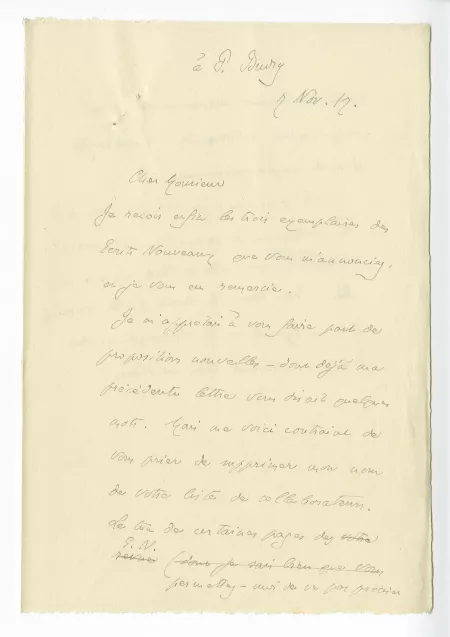 à P. Budry
7 Nov. 17.
Cher Monsieur
Je reçois enfin les trois exemplaires des
Ecrits Nouveaux que vous m'annonciez,
et je vous en remercie.
Je m'apprêtais à vous faire part de
propositions nouvelles – dont déjà ma
précédente lettre vous disait quelques
mots. Mais me voici contraint de
vous prier de supprimer mon nom
de votre liste de collaborateurs.
Le ton de certaines pages des votre
E. N.
revue (dont je sais bien que vous
permettez – moi de ne pas préciser